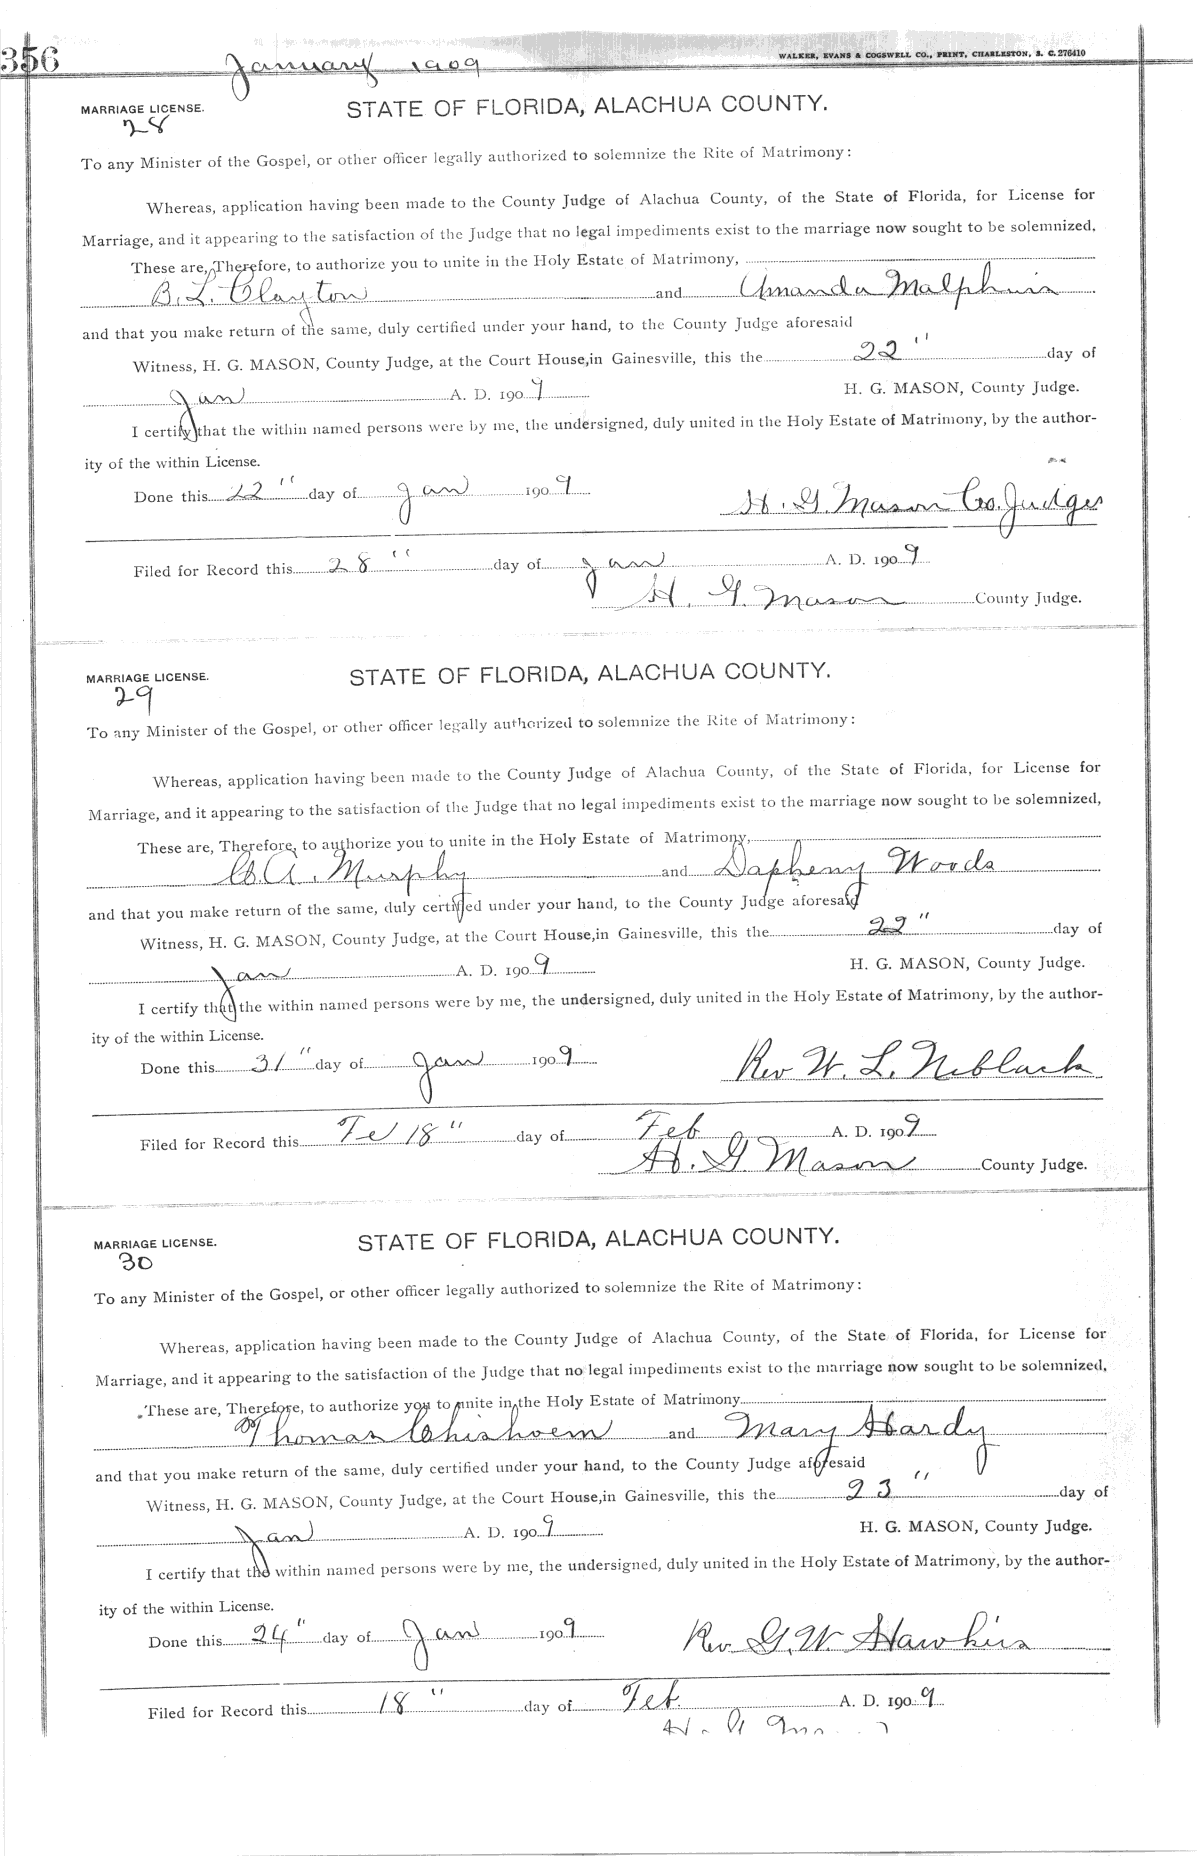 356
January 1909
WALKER, EVANS & COGSWELL CO., PRINT, CHARLESTON, S. C. 276410
MARRIAGE LICENSE. STATE OF FLORIDA, ALACHUA COUNTY.
28
To any Minister of the Gospel, or other officer legally authorized to solemnize the Rite of Matrimony:
Whereas, application having been made to the County Judge of Alachua County, of the State of Florida, for License for
Marriage, and it appearing to the satisfaction of the Judge that no legal impediments exist to the marriage now sought to be solemnized.
These are, Therefore, to authorize you to unite in the Holy Estate of Matrimony,
B. L. Clayton and Amanda Malphurs
and that you make return of the same, duly certified under your hand, to the County Judge aforesaid
Witness, H. G. MASON, County Judge, at the Court House, in Gainesville, this the 22" day of
Jan A. D. 1909 H. G. MASON, County Judge.
I certify that the within named persons were by me, the undersigned, duly united in the Holy Estate of Matrimony, by the author-
ity of the within License.
Done this 22" day of Jan 1909
H. G. Mason Co. Judge
Filed for Record this 28" day of Jan A. D. 1909
H. G. Mason County Judge.
MARRIAGE LICENSE. STATE OF FLORIDA, ALACHUA COUNTY.
29
To any Minister of the Gospel, or other officer legally authorized to solemnize the Rite of Matrimony:
Whereas, application having been made to the County Judge of Alachua County, of the State of Florida, for License for
Marriage, and it appearing to the satisfaction of the Judge that no legal impediments exist to the marriage now sought to be solemnized,
These are, Therefore, to authorize you to unite in the Holy Estate of Matrimony,
C. A. Murphy and Dapheny Woods
and that you make return of the same, duly certified under your hand, to the County Judge aforesaid
Witness, H. G. MASON, County Judge, at the Court House, in Gainesville, this the 22" day of
Jan A. D. 1909 H. G. MASON, County Judge.
I certify that the within named persons were by me, the undersigned, duly united in the Holy Estate of Matrimony, by the author-
ity of the within License.
Done this 31" day of Jan 1909 Rev W. L. Niblack
Filed for Record this Fe 18" day of Feb A. D. 1909
H. G. Mason County Judge.
MARRIAGE LICENSE. STATE OF FLORIDA, ALACHUA COUNTY.
30
To any Minister of the Gospel, or other officer legally authorized to solemnize the Rite of Matrimony:
Whereas, application having been made to the County Judge of Alachua County, of the State of Florida, for License for
Marriage, and it appearing to the satisfaction of the Judge that no legal impediments exist to the marriage now sought to be solemnized,
These are, Therefore, to authorize you to unite in the Holy Estate of Matrimony
Thomas Chishoem and Mary Hardy
and that you make return of the same, duly certified under your hand, to the County Judge aforesaid
Witness, H. G. MASON, County Judge, at the Court House, in Gainesville, this the 23" day of
Jan A. D. 1909 H. G. MASON, County Judge.
I certify that the within named persons were by me, the undersigned, duly united in the Holy Estate of Matrimony, by the author-
ity of the within License.
Done this 24" day of Jan 1909 Rev. G. W. Hawkins
Filed for Record this 18" day of Feb. A. D. 1909